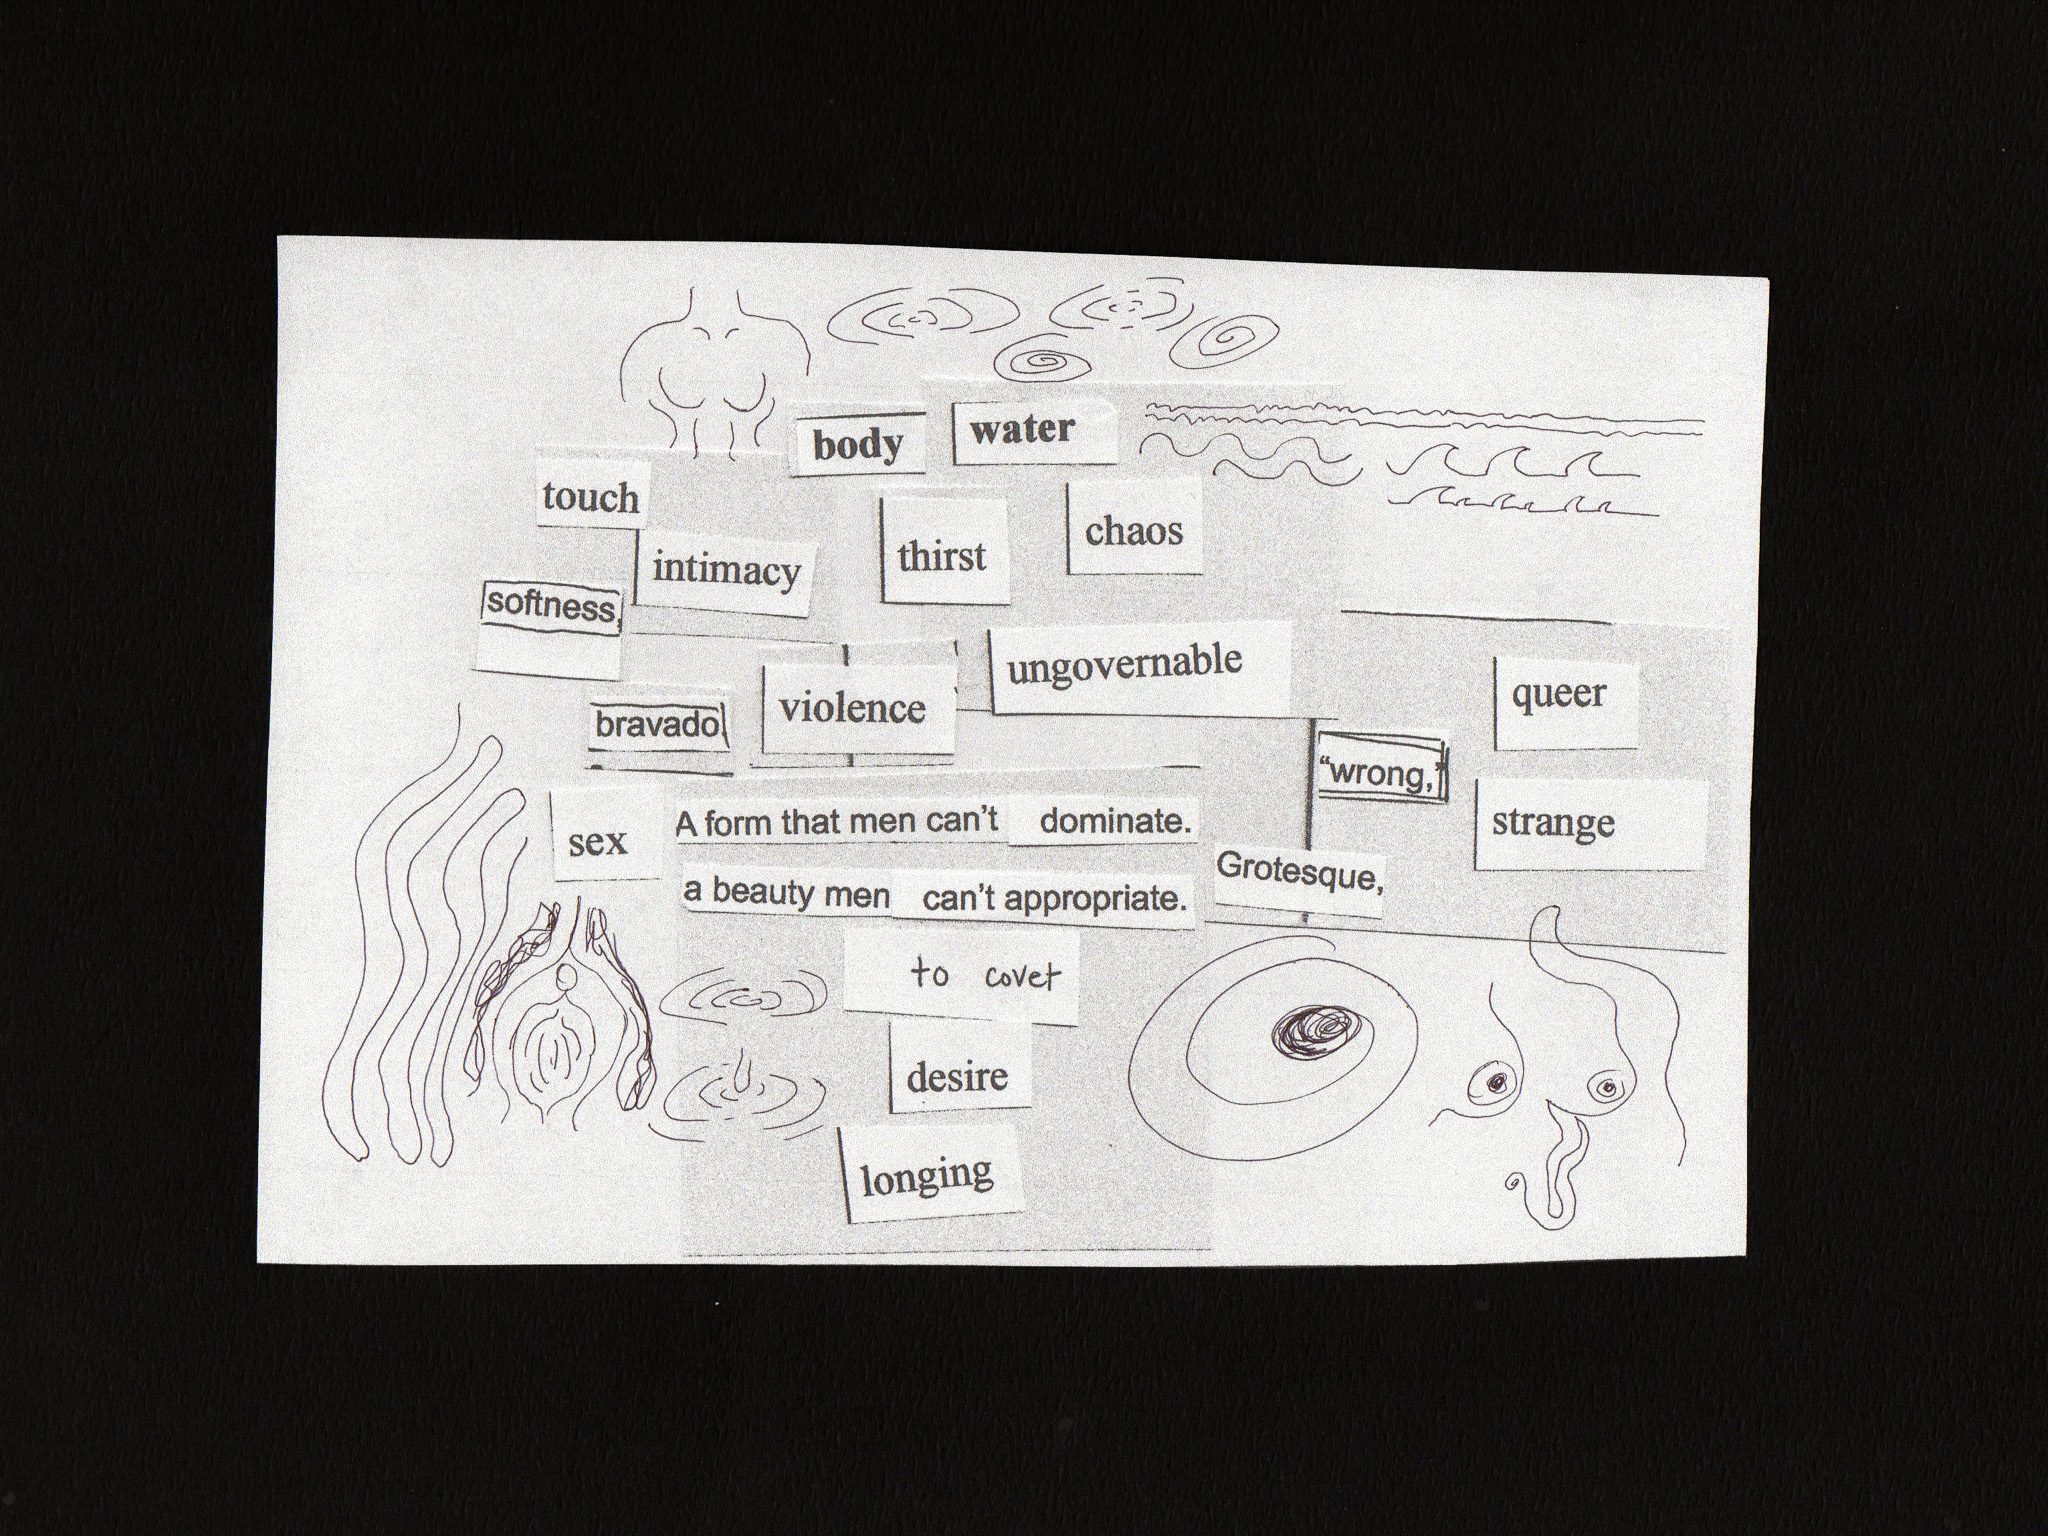 body water
touch
intimacy
thirst
chaos
softness,
bravado
violence
ungovernable
queer
"wrong,"
strange
sex
A form that men can't dominate.
a beauty men can't appropriate.
Grotesque,
to covet
desire
longing